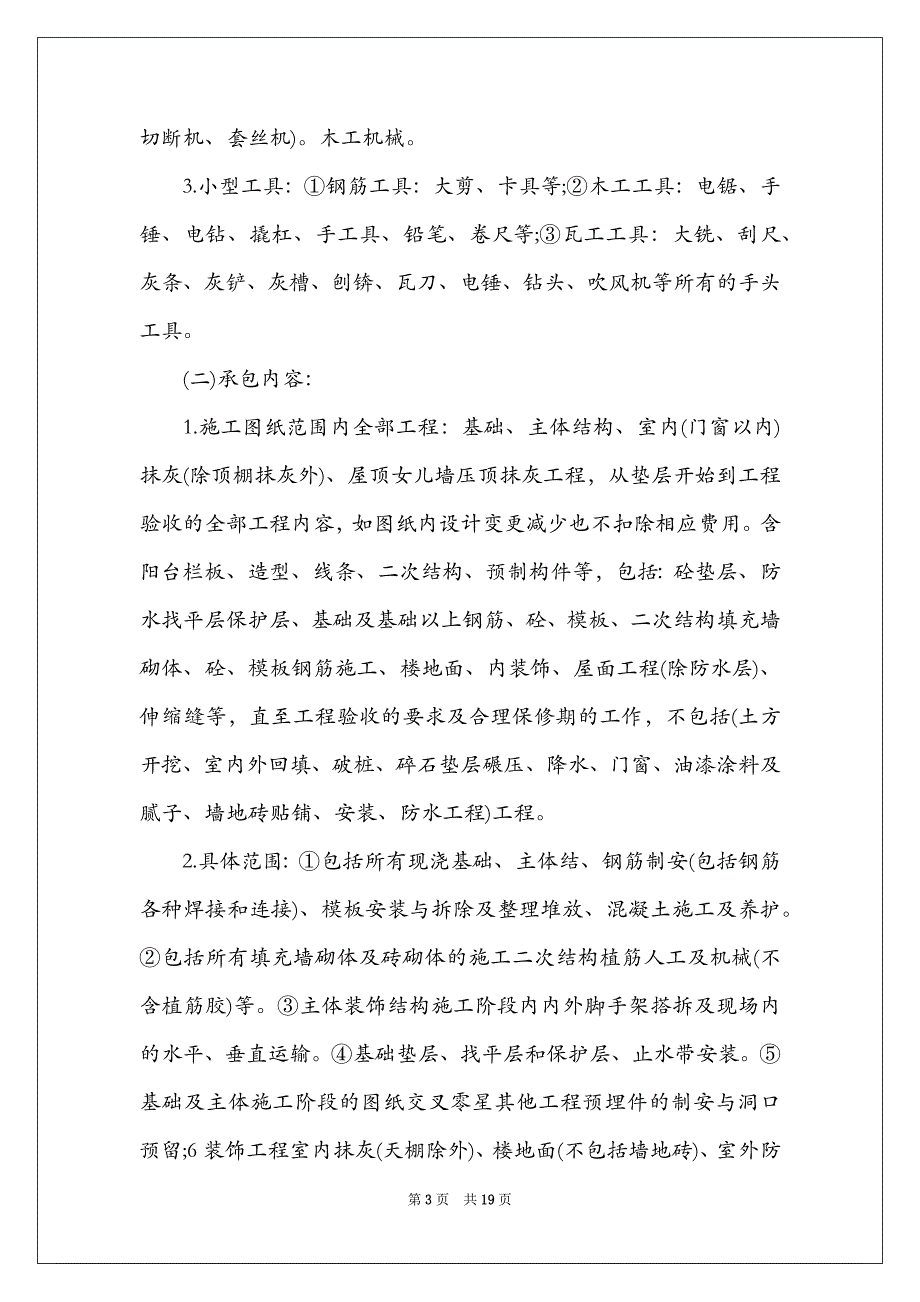 切断机、套丝机)。木工机械。
3.小型工具：①钢筋工具：大剪、卡具等;②木工工具：电锯、手
锤、电钻、撬杠、手工具、铅笔、卷尺等;③瓦工工具：大铣、刮尺、
灰条、灰铲、灰槽、刨锛、瓦刀、电锤、钻头、吹风机等所有的手头
工具。
(二)承包内容：
1.施工图纸范围内全部工程：基础、主体结构、室内(门窗以内)
抹灰(除顶棚抹灰外)、屋顶女儿墙压顶抹灰工程，从垫层开始到工程
验收的全部工程内容，如图纸内设计变更减少也不扣除相应费用。含
阳台栏板、造型、线条、二次结构、预制构件等，包括：砼垫层、防
水找平层保护层、基础及基础以上钢筋、砼、模板、二次结构填充墙
砌体、砼、模板钢筋施工、楼地面、内装饰、屋面工程(除防水层)、
伸缩缝等，直至工程验收的要求及合理保修期的工作，不包括(土方
开挖、室内外回填、破桩、碎石垫层碾压、降水、门窗、油漆涂料及
腻子、墙地砖贴铺、安装、防水工程)工程。
2.具体范围：①包括所有现浇基础、主体结、钢筋制安(包括钢筋
各种焊接和连接)、模板安装与拆除及整理堆放、混凝土施工及养护。
②包括所有填充墙砌体及砖砌体的施工二次结构植筋人工及机械(不
含植筋胶)等。③主体装饰结构施工阶段内内外脚手架搭拆及现场内
的水平、垂直运输。④基础垫层、找平层和保护层、止水带安装。⑤
基础及主体施工阶段的图纸交叉零星其他工程预埋件的制安与洞口
预留;6 装饰工程室内抹灰(天棚除外)、楼地面(不包括墙地砖)、室外防
第 3 页 共 19 页